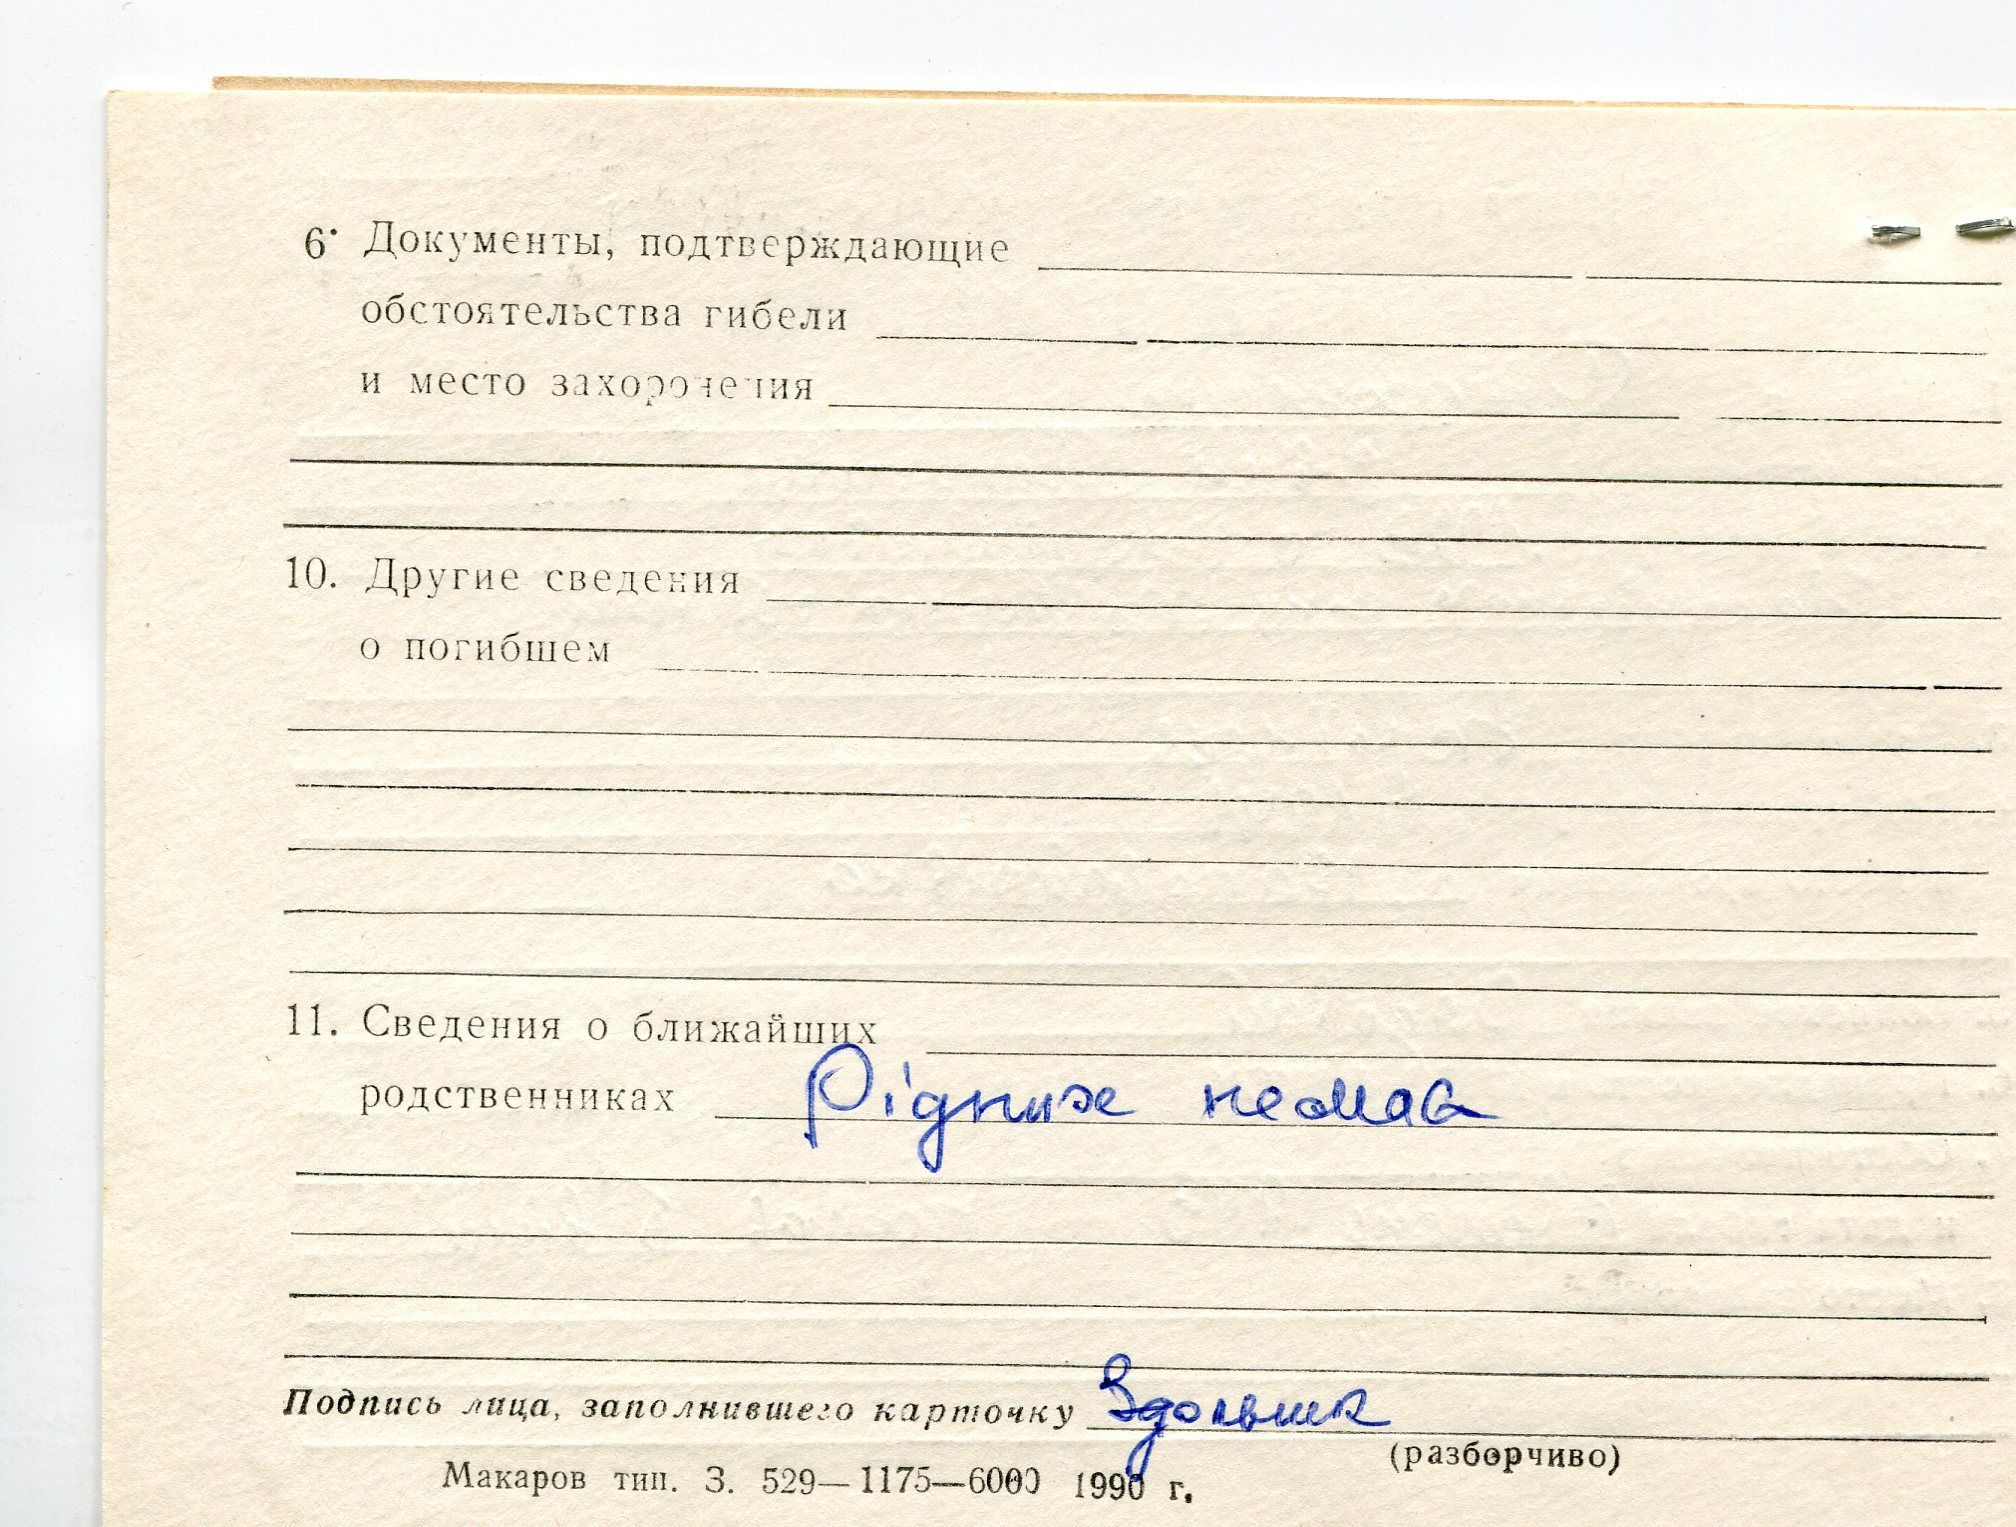 6. Документы, подтверждающие
обстоятельства гибели
и место захоронения
10. Другие сведения
о погибшем
11. Сведения о ближайших
родственниках Рідних немає
Подпись лица, заполнившего карточку
(разборчиво)
Макаров тип. З. 529—1175—6000 1990 г.